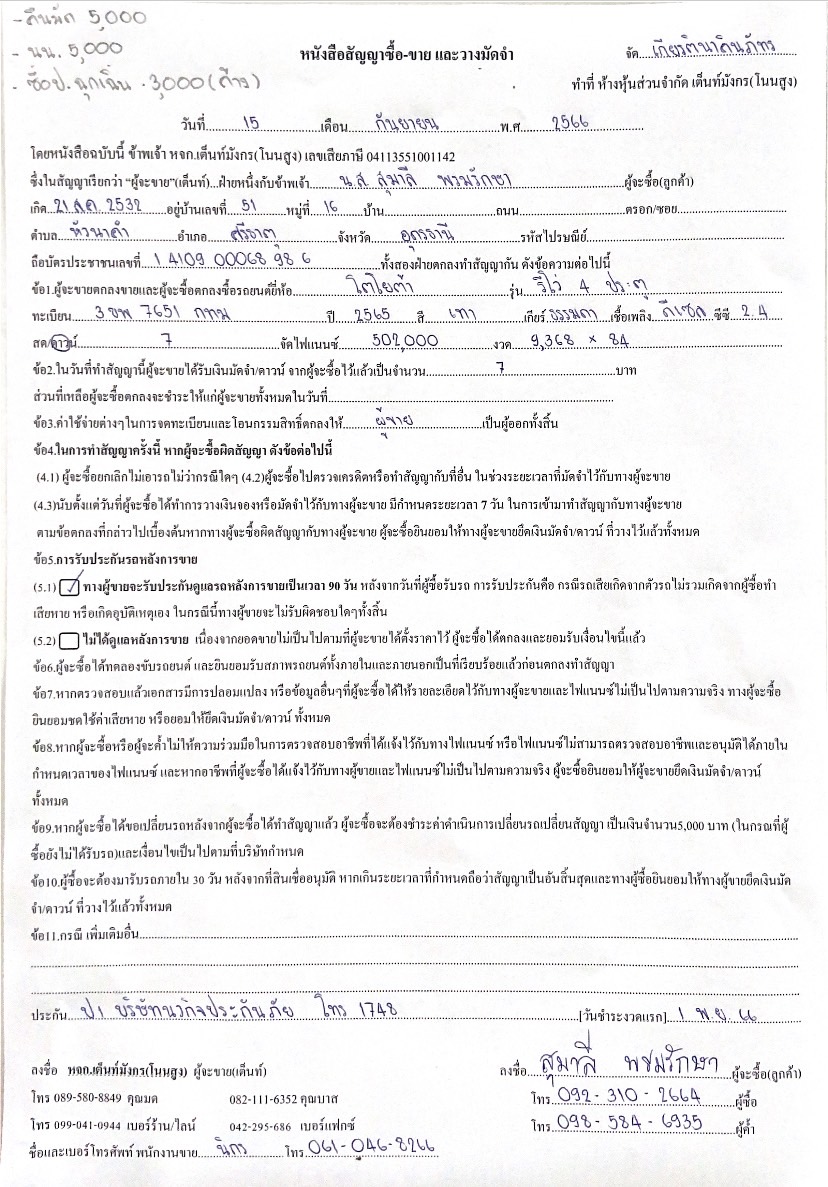 - คืนมัด 5,000
- นน. 5,000
- ช็อป. ฉุกเฉิน . 3,000 (ค้าง)
หนังสือสัญญาซื้อ-ขาย และวางมัดจำ
จัด เกียรตินาคินภัทร
ทำที่ ห้างหุ้นส่วนจำกัด เต็นท์มังกร(โนนสูง)
วันที่ 15 เดือน กันยายน พ.ศ 2566
โดยหนังสือฉบับนี้ ข้าพเจ้า หจก.เต็นท์มังกร(โนนสูง) เลขเสียภาษี 04113551001142
ซึ่งในสัญญาเรียกว่า "ผู้จะขาย"(เต็นท์)...ฝ่ายหนึ่งกับข้าพเจ้า น.ส สุมาลี พรมรักษา ผู้จะซื้อ(ลูกค้า)
เกิด 21 ส.ค. 2532 อยู่บ้านเลขที่ 51 หมู่ที่ 16 บ้าน ถนน ตรอก/ซอย
ตำบล หัวนาคำ อำเภอ ศรีธาตุ จังหวัด อุดรธานี รหัสไปรษณีย์
ถือบัตรประชาชนเลขที่ 1 4109 00068 98 6 ทั้งสองฝ่ายตกลงทำสัญญากัน ดังข้อความต่อไปนี้
ข้อ1.ผู้จะขายตกลงขายและผู้จะซื้อตกลงซื้อรถยนต์ยี่ห้อ โตโยต้า รุ่น รีโว่ 4 ประตู
ทะเบียน 3ขพ 7651 กทม ปี 2565 สี เทา เกียร์ ธรรมดา เชื้อเพลิง ดีเซล ซีซี 2.4
สด/ดาวน์ 7 จัดไฟแนนซ์ 502,000 งวด 9,368 × 84
ข้อ2.ในวันที่ทำสัญญานี้ผู้จะขายได้รับเงินมัดจำ/ดาวน์ จากผู้จะซื้อไว้แล้วเป็นจำนวน 7 บาท
ส่วนที่เหลือผู้จะซื้อตกลงจะชำระให้แก่ผู้จะขายทั้งหมดในวันที่
ข้อ3.ค่าใช้จ่ายต่างๆในการจดทะเบียนและโอนกรรมสิทธิ์ตกลงให้ ผู้ขาย เป็นผู้ออกทั้งสิ้น
ข้อ4.ในการทำสัญญาครั้งนี้ หากผู้จะซื้อผิดสัญญา ดังข้อต่อไปนี้
(4.1) ผู้จะซื้อยกเลิกไม่เอารถไม่ว่ากรณีใดๆ (4.2)ผู้จะซื้อไปตรวจเครดิตหรือทำสัญญากับที่อื่น ในช่วงระยะเวลาที่มัดจำไว้กับทางผู้จะขาย
(4.3)นับตั้งแต่วันที่ผู้จะซื้อได้ทำการวางเงินจองหรือมัดจำไว้กับทางผู้จะขาย มีกำหนดระยะเวลา 7 วัน ในการเข้ามาทำสัญญากับทางผู้จะขาย
ตามข้อตกลงที่กล่าวไปเบื้องต้นหากทางผู้จะซื้อผิดสัญญากับทางผู้จะขาย ผู้จะซื้อยินยอมให้ทางผู้จะขายยึดเงินมัดจำ/ดาวน์ ที่วางไว้แล้วทั้งหมด
ข้อ5.การรับประกันรถหลังการขาย
(5.1) ทางผู้ขายจะรับประกันดูแลรถหลังการขายเป็นเวลา 90 วัน หลังจากวันที่ผู้ซื้อรับรถ การรับประกันคือ กรณีรถเสียเกิดจากตัวรถไม่รวมเกิดจากผู้ซื้อทำ
เสียหาย หรือเกิดอุบัติเหตุเอง ในกรณีนี้ทางผู้ขายจะไม่รับผิดชอบใดๆทั้งสิ้น
(5.2) ไม่ได้ดูแลหลังการขาย เนื่องจากยอดขายไม่เป็นไปตามที่ผู้จะขายได้ตั้งราคาไว้ ผู้จะซื้อได้ตกลงและยอมรับเงื่อนไขนี้แล้ว
ข้อ6.ผู้จะซื้อได้ทดลองขับรถยนต์ และยินยอมรับสภาพรถยนต์ทั้งภายในและภายนอกเป็นที่เรียบร้อยแล้วก่อนตกลงทำสัญญา
ข้อ7.หากตรวจสอบแล้วเอกสารมีการปลอมแปลง หรือข้อมูลอื่นๆที่ผู้จะซื้อได้ให้รายละเอียดไว้กับทางผู้จะขายและไฟแนนซ์ไม่เป็นไปตามความจริง ทางผู้จะซื้อ
ยินยอมชดใช้ค่าเสียหาย หรือยอมให้ยึดเงินมัดจำ/ดาวน์ ทั้งหมด
ข้อ8.หากผู้จะซื้อหรือผู้จะค้ำไม่ให้ความร่วมมือในการตรวจสอบอาชีพที่ได้แจ้งไว้กับทางไฟแนนซ์ หรือไฟแนนซ์ไม่สามารถตรวจสอบอาชีพและอนุมัติได้ภายใน
กำหนดเวลาของไฟแนนซ์ และหากอาชีพที่ผู้จะซื้อได้แจ้งไว้กับทางผู้ขายและไฟแนนซ์ไม่เป็นไปตามความจริง ผู้จะซื้อยินยอมให้ผู้จะขายยึดเงินมัดจำ/ดาวน์
ทั้งหมด
ข้อ9.หากผู้จะซื้อได้ขอเปลี่ยนรถหลังจากผู้จะซื้อได้ทำสัญญาแล้ว ผู้จะซื้อจะต้องชำระค่าดำเนินการเปลี่ยนรถเปลี่ยนสัญญา เป็นเงินจำนวน5,000 บาท (ในกรณที่ผู้
ซื้อยังไม่ได้รับรถ)และเงื่อนไขเป็นไปตามที่บริษัทกำหนด
ข้อ10.ผู้ซื้อจะต้องมารับรถภายใน 30 วัน หลังจากที่สินเชื่ออนุมัติ หากเกินระยะเวลาที่กำหนดถือว่าสัญญาเป็นอันสิ้นสุดและทางผู้ซื้อยินยอมให้ทางผู้ขายยึดเงินมัด
จำ/ดาวน์ ที่วางไว้แล้วทั้งหมด
ข้อ11.กรณี เพิ่มเติมอื่น
ประกัน ป1 บริษัทนวกิจประกันภัย โทร 1748 [วันชำระงวดแรก] 1 พ.ย. 66
ลงชื่อ หจก.เต็นท์มังกร(โนนสูง) ผู้จะขาย(เต็นท์) ลงชื่อ สุมาลี พรมรักษา ผู้จะซื้อ(ลูกค้า)
โทร 089-580-8849 คุณมด 082-111-6352 คุณบาส โทร 092-310-2664 ผู้ซื้อ
โทร 099-041-0944 เบอร์ร้าน/ไลน์ 042-295-686 เบอร์แฟกซ์ โทร 098-584-6935 ผู้ค้ำ
ชื่อและเบอร์โทรศัพท์ พนักงานขาย นิกร โทร 061-046-8266